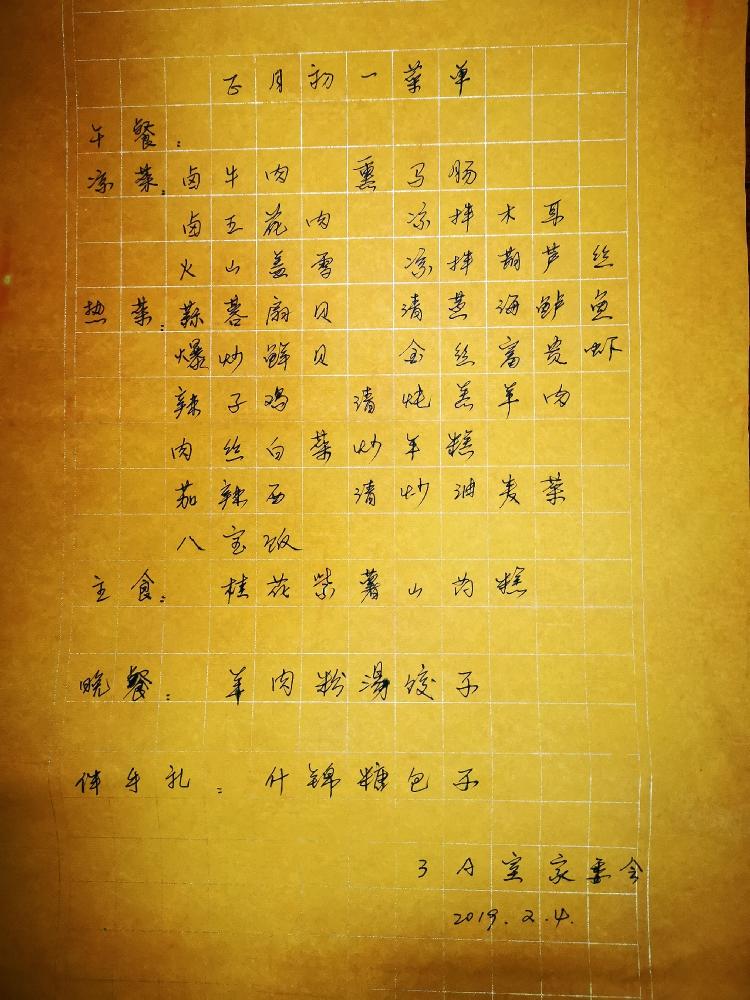 正月初一菜单
午餐：
凉菜：卤牛肉 熏马肠
卤五花肉 凉拌木耳
火山盖雪 凉拌葫芦丝
热菜：蒜蓉扇贝 清蒸海鲈鱼
爆炒鲜贝 金丝富贵虾
辣子鸡 清炖羔羊肉
肉丝白菜炒年糕
茄辣西 清炒油麦菜
八宝饭
主食： 桂花紫薯山药糕
晚餐： 羊肉粉汤饺子
伴手礼：什锦糖包子
3A室家委会
2019.2.4.